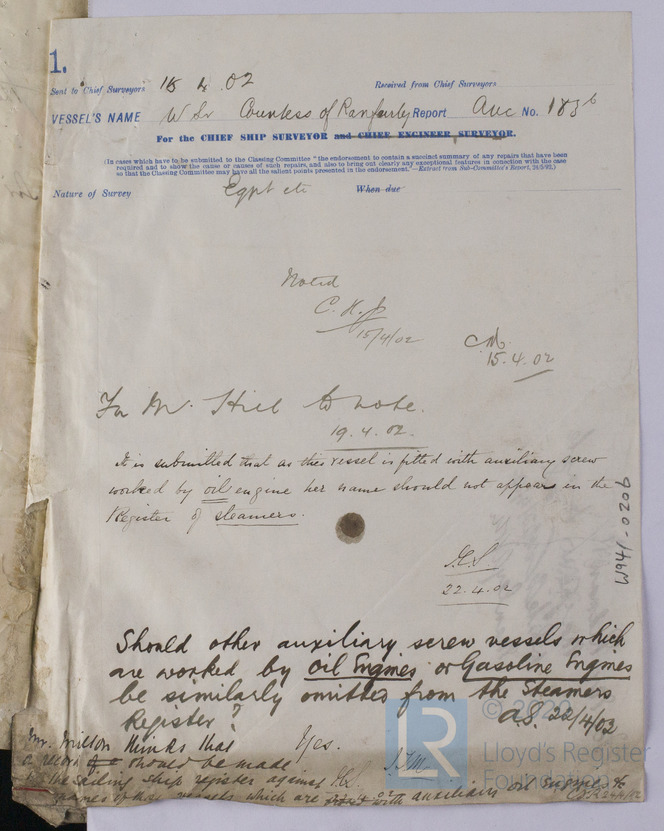 1.
Sent to Chief Surveyors 15 4 02 Received from Chief Surveyors
VESSEL'S NAME W Sr Countess of Ranfurly Report Auc No. 1836
For the CHIEF SHIP SURVEYOR and CHIEF ENGINEER SURVEYOR.
(In cases which have to be submitted to the Classing Committee "the endorsement to contain a succinct summary of any repairs that have been
required and to show the cause or causes of such repairs, and also to bring out clearly any exceptional features in conection with the case
so that the Classing Committee may have all the salient points presented in the endorsement."—Extract from Sub-Committee's Report, 24/5/92.)
Nature of Survey Egpt etc When due
Noted
15/4/02
15.4.02
For Mr. Hill to note.
19.4.02.
It is submitted that as this vessel is fitted with auxiliary screw
worked by oil engine her name should not appear in the
Register of steamers.
22.4.02
W941-0206
Should other auxiliary screw vessels which
are worked by Oil Engines or Gasoline Engines
be similarly omitted from the Steamers
Register? A.S. 22/4/02
Yes.
Mr. Milton thinks that
a record should be made
in the sailing ship register against
names of these vessels which are with auxiliary oil engines &c
LR
© 2020
Lloyd's Register
Foundation